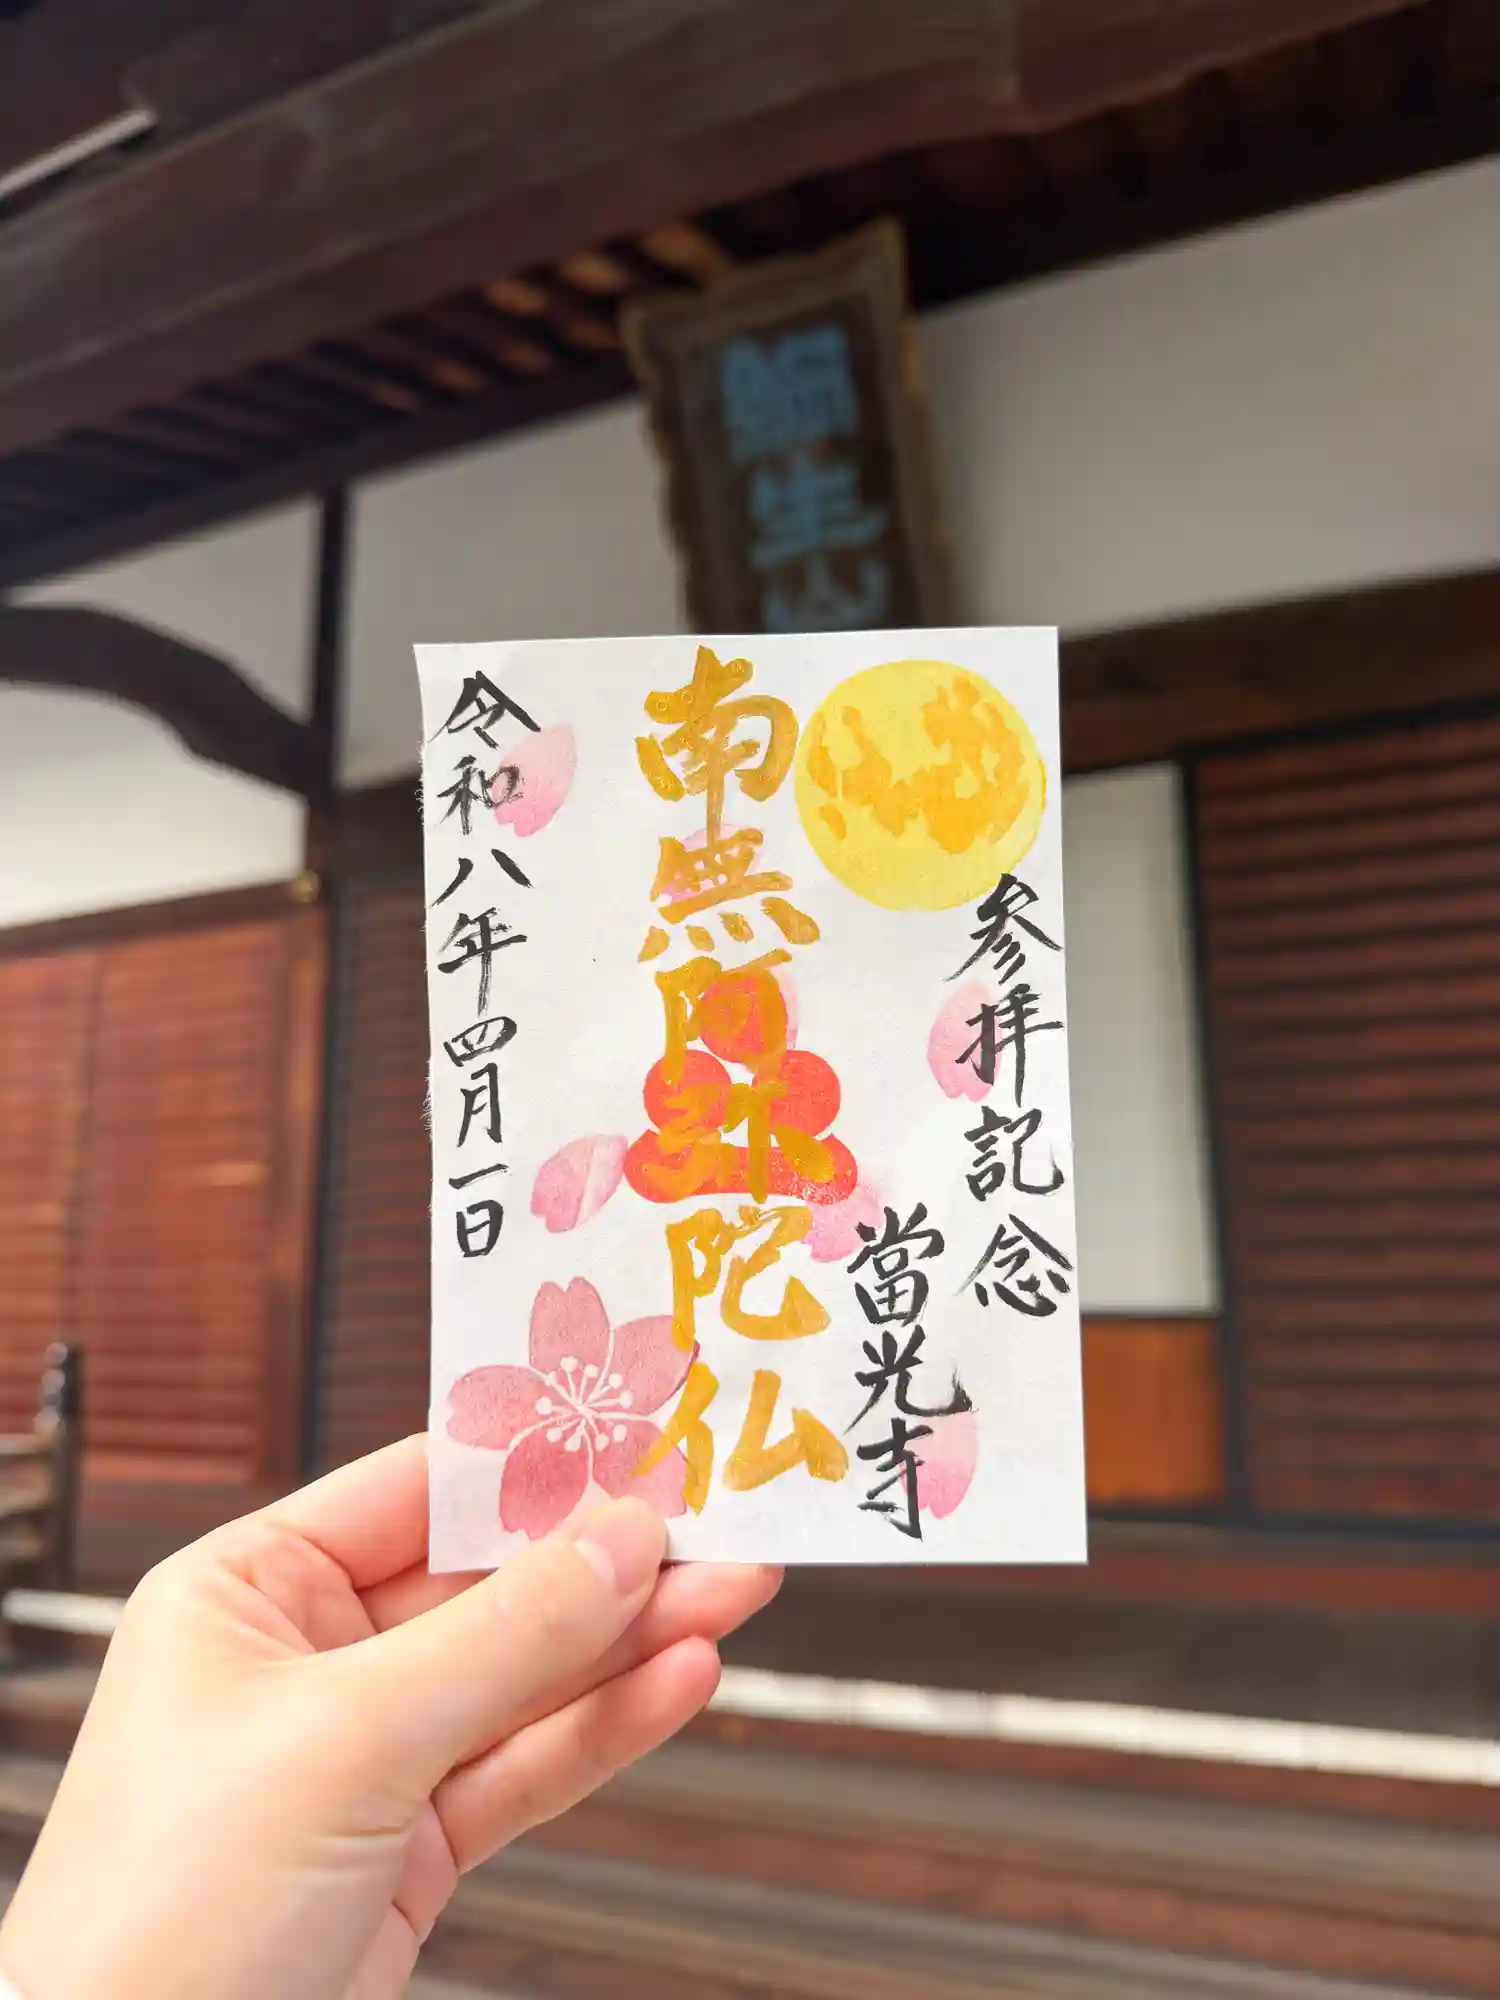 参拝記念
當光寺
南無阿弥陀仏
令和八年四月一日